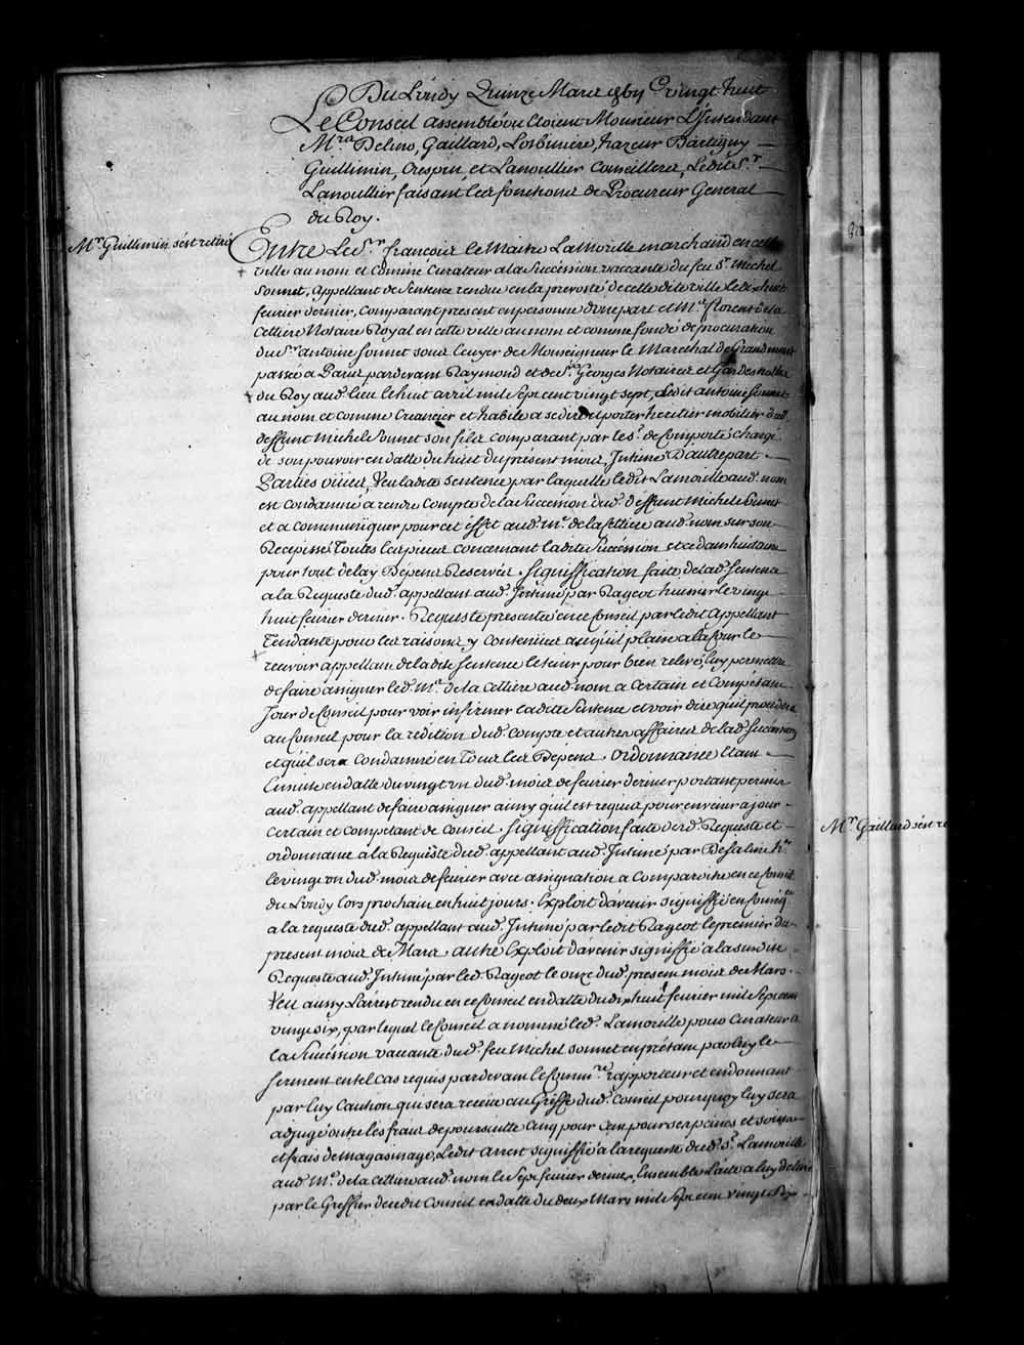 Du Lundy Quinze Mars gbij C vingt huit
Le Conseil assemblé ou Etoient Monsieur L'Intendant
Mrs Delino, Gaillard, Lotbiniere, hazeur Dartigny
Guillimin, Crespin, et Lanoullier Conseillers, Ledit Sr.
Lanoullier faisant les fonctions de Procureur General
du Roy.
Mr. Guillimin s'est retiré
Entre Le Sr. francois le Maitre Lamorille marchand en cette
ville au nom et comme Curateur a la Succession vaccante du feu Sr. Michel
Sonnet, appellant de Sentence rendue en la prevosté de cette dite ville le dix huit
fevrier dernier, Comparant present en personne d'une part et Me. florent de la
Cettiere Notaire Royal en cette ville au nom et comme fondé de procuration
du Sr. antoine Sonnet sous Ecuyer de Monseigneur le Marechal de Grandmont
passée a Paris pardevant Raymond et de St. Georges Notaires et Gardes nottes
du Roy aud. lieu le huit avril mil Sept cent vingt sept, Ledit antoine Sonnet
au nom et comme Creancier et habile a se dire et porter heritier mobilier dud.
deffunt Michel Sonnet son fils comparant par le Sr. de Comporté chargé
de son pouvoir en datte du huit du present mois, Intimé D'autrepart
Parties ouies, Veu ladite Sentence par laquelle ledit Lamorille aud. nom
est condamné a rendre Compte de la Succession dud. deffunt Michel Sonnet
et a Communiquer pour cet effet aud. Me. de la Cettiere aud. nom sur son
Recepissé Toutes les pieces concernant ladite Succession et ce dans huitaine
pour tout delay Depens Reservés. Signiffication faite de lad. Sentence
a la Requeste dud. appellant aud. Intimé par Rageot huissier le vingt
huit fevrier dernier. Requeste presentée en ce Conseil par ledit Appellant
Tendante pour les raisons y Contenües a ce qu'il plaise a la Cour le
recevoir appellant de ladite Sentence le tenir pour bien relevé, luy permettre
de faire assigner led. Me. de la Cettiere aud. nom a Certain et Competant
Jour de Conseil pour voir infirmer ladite Sentence et voir dire qu'il procedera
au Conseil pour la redition dud. compte et autres affaires de lad. Succession
et qu'il sera Condamné en Tous les Depens. Ordonnance Etant
Ensuite en datte du vingt un dud. mois de fevrier dernier portant permis
aud. appellant de faire assigner ainsy qu'il est requis pour en venir a jour
Certain et competant de Conseil. Signiffication faite desd. Requeste et
ordonnance a la Requeste dud. appellant aud. Intimé par Desaline hr.
le vingt un dud. mois de fevrier avec assignation a Comparoitre en ce Conseil
du Lundy lors prochain en huit jours. Exploit d'avenir signiffié en Conseqce.
a la requeste dud. appellant aud. Intimé par ledit Rageot le premier du
present mois de Mars. autre Exploit d'avenir signiffié a la susdite
Requeste aud. Intimé par led. Rageot le onze dud. present mois de Mars.
Veu aussy L'arrest rendu en ce Conseil en datte du dix huit fevrier mil Sept cent
vingt six, par lequel le Conseil a nommé led. Lamorille pour Curateur a
la Succession vaccante dud. feu Michel Sonnet en pretant par luy le
serment en tel cas requis pardevant le Commre. rapporteur et en donnant
par luy Caution qui sera receüe au Greffe dud. Conseil pourquoy luy sera
adjugé outre les fraix de poursuitte Cinq pour Cent pour ses peines et soins
et frais de magasinage, Ledit arrest signiffié a la requeste dud. Sr. Lamorille
aud. Me. de la Cettiere aud. nom le Sept fevrier dernier, Ensemble L'acte a luy delivré
par le Greffier dudit Conseil en datte du deux Mars mil Sept cent vingt Six
Mr. Gaillard s'est re